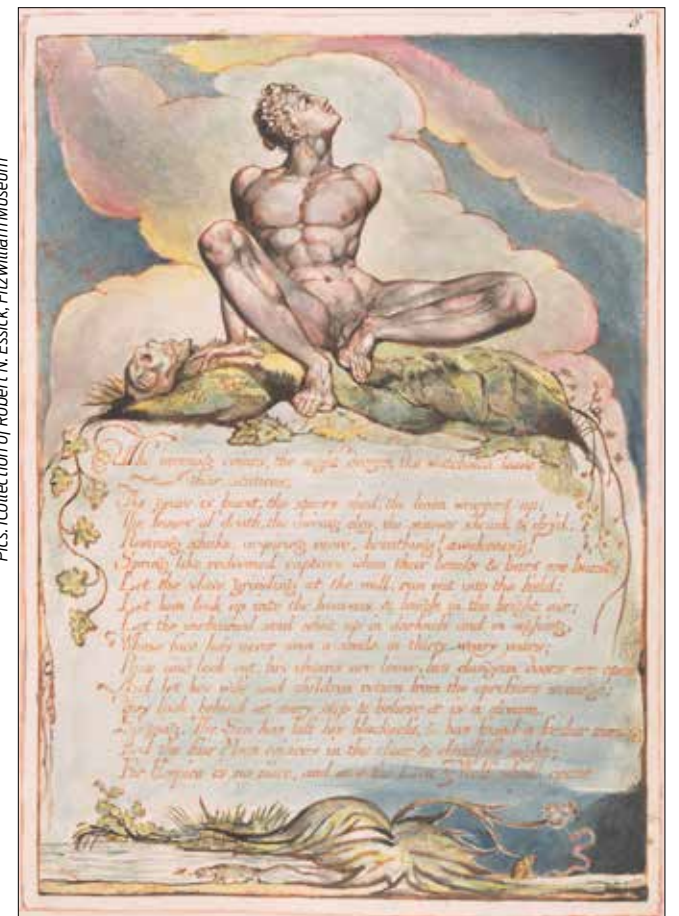 The morning comes, the night decays, the watchmen leave
their stations;
The grave is burst, the spices shed, the linen wrapped up;
The bones of death, the cov'ring clay, the sinews shrunk & dry'd.
Reviving shake, inspiring move, breathing! awakening!
Spring like redeemed captives when their bonds & bars are burst;
Let the slave grinding at the mill, run out into the field:
Let him look up into the heavens & laugh in the bright air;
Let the inchained soul shut up in darkness and in sighing,
Whose face has never seen a smile in thirty weary years;
Rise and look out, his chains are loose, his dungeon doors are open.
And let his wife and children return from the opressors scourge;
They look behind at every step & believe it is a dream.
Singing. The Sun has left his blackness, & has found a fresher morning
And the fair Moon rejoices in the clear & cloudless night;
For Empire is no more, and now the Lion & Wolf shall cease.
Collection of Robert N. Essick, Fitzwilliam Museum